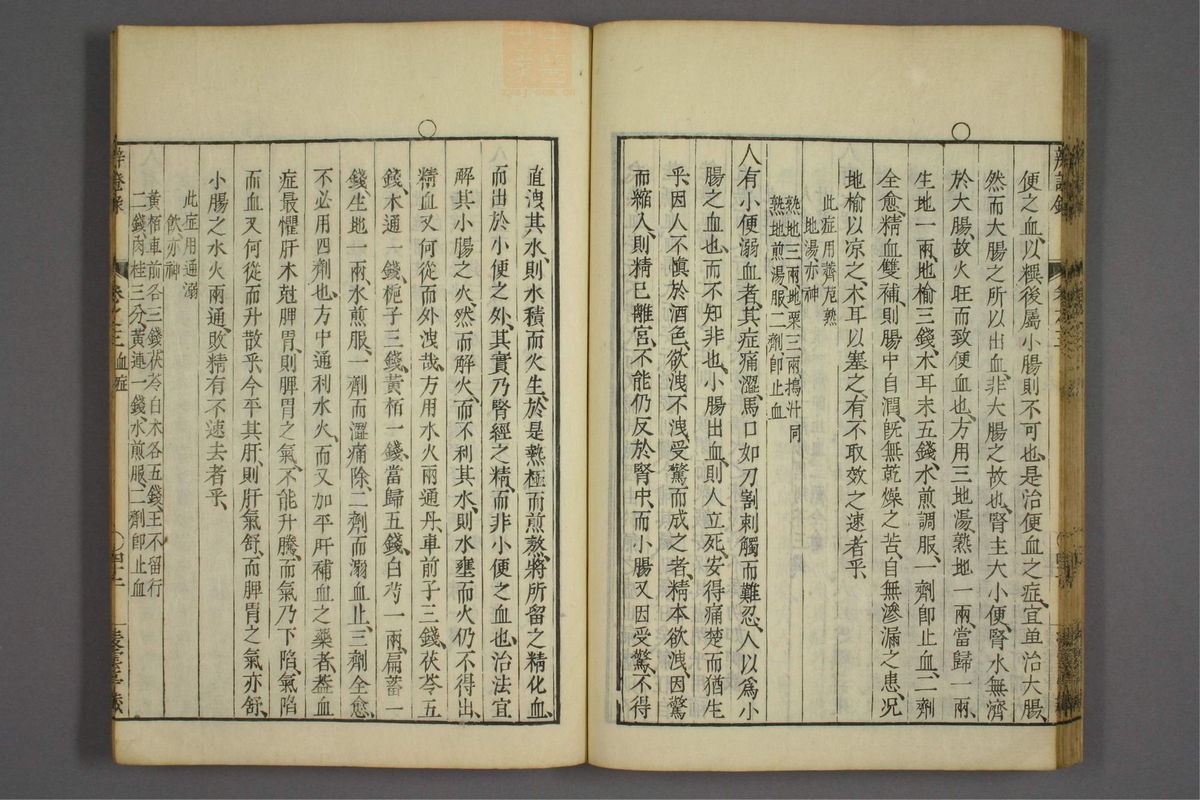 便之血以糞後屬小腸則不可也是治便血之症宜單治大腸
然而大腸之所以出血非大腸之故也腎主大小便腎水無濟
於大腸故火旺而致便血也方用三地湯熟地一兩當歸一兩
生地一兩地榆三錢木耳末五錢水煎調服一劑即止血二劑
全愈精血雙補則腸中自潤既無乾燥之苦自無滲漏之患况
地榆以凉之木耳以塞之有不取效之速者乎
此症用薺苨熟
地湯亦神
熟地三兩地栗三兩搗汁同
熟地煎湯服二劑即止血
人有小便溺血者其症痛澀馬口如刀割刺觸而難忍人以爲小
腸之血也而不知非也小腸出血則人立死安得痛楚而猶生
乎因人不慎於酒色欲洩不洩受驚而成之者精本欲洩因驚
而縮入則精已離宮不能仍反於腎中而小腸又因受驚不得
直洩其水則水積而火生於是熱極而煎熬將所留之精化血
而出於小便之外其實乃腎經之精而非小便之血也治法宜
解其小腸之火然而解火而不利其水則水壅而火仍不得出
精血又何從而外洩哉方用水火兩通丹車前子三錢茯苓五
錢木通一錢梔子三錢黃栢一錢當歸五錢白芍一兩扁蓄一
錢生地一兩水煎服一劑而澀痛除二劑而溺血止三劑全愈
不必用四劑也方中通利水火而又加平肝補血之藥者蓋血
症最懼肝木尅脾胃則脾胃之氣不能升騰而氣乃下陷氣陷
而血又何從而升散乎今平其肝則肝氣舒而脾胃之氣亦舒
小腸之水火兩通敗精有不速去者乎
此症用通溺
飲亦神
黃栢車前各三錢茯苓白木各五錢王不留行
二錢肉桂三分黃連一錢水煎服二劑即止血
卷之三 血症